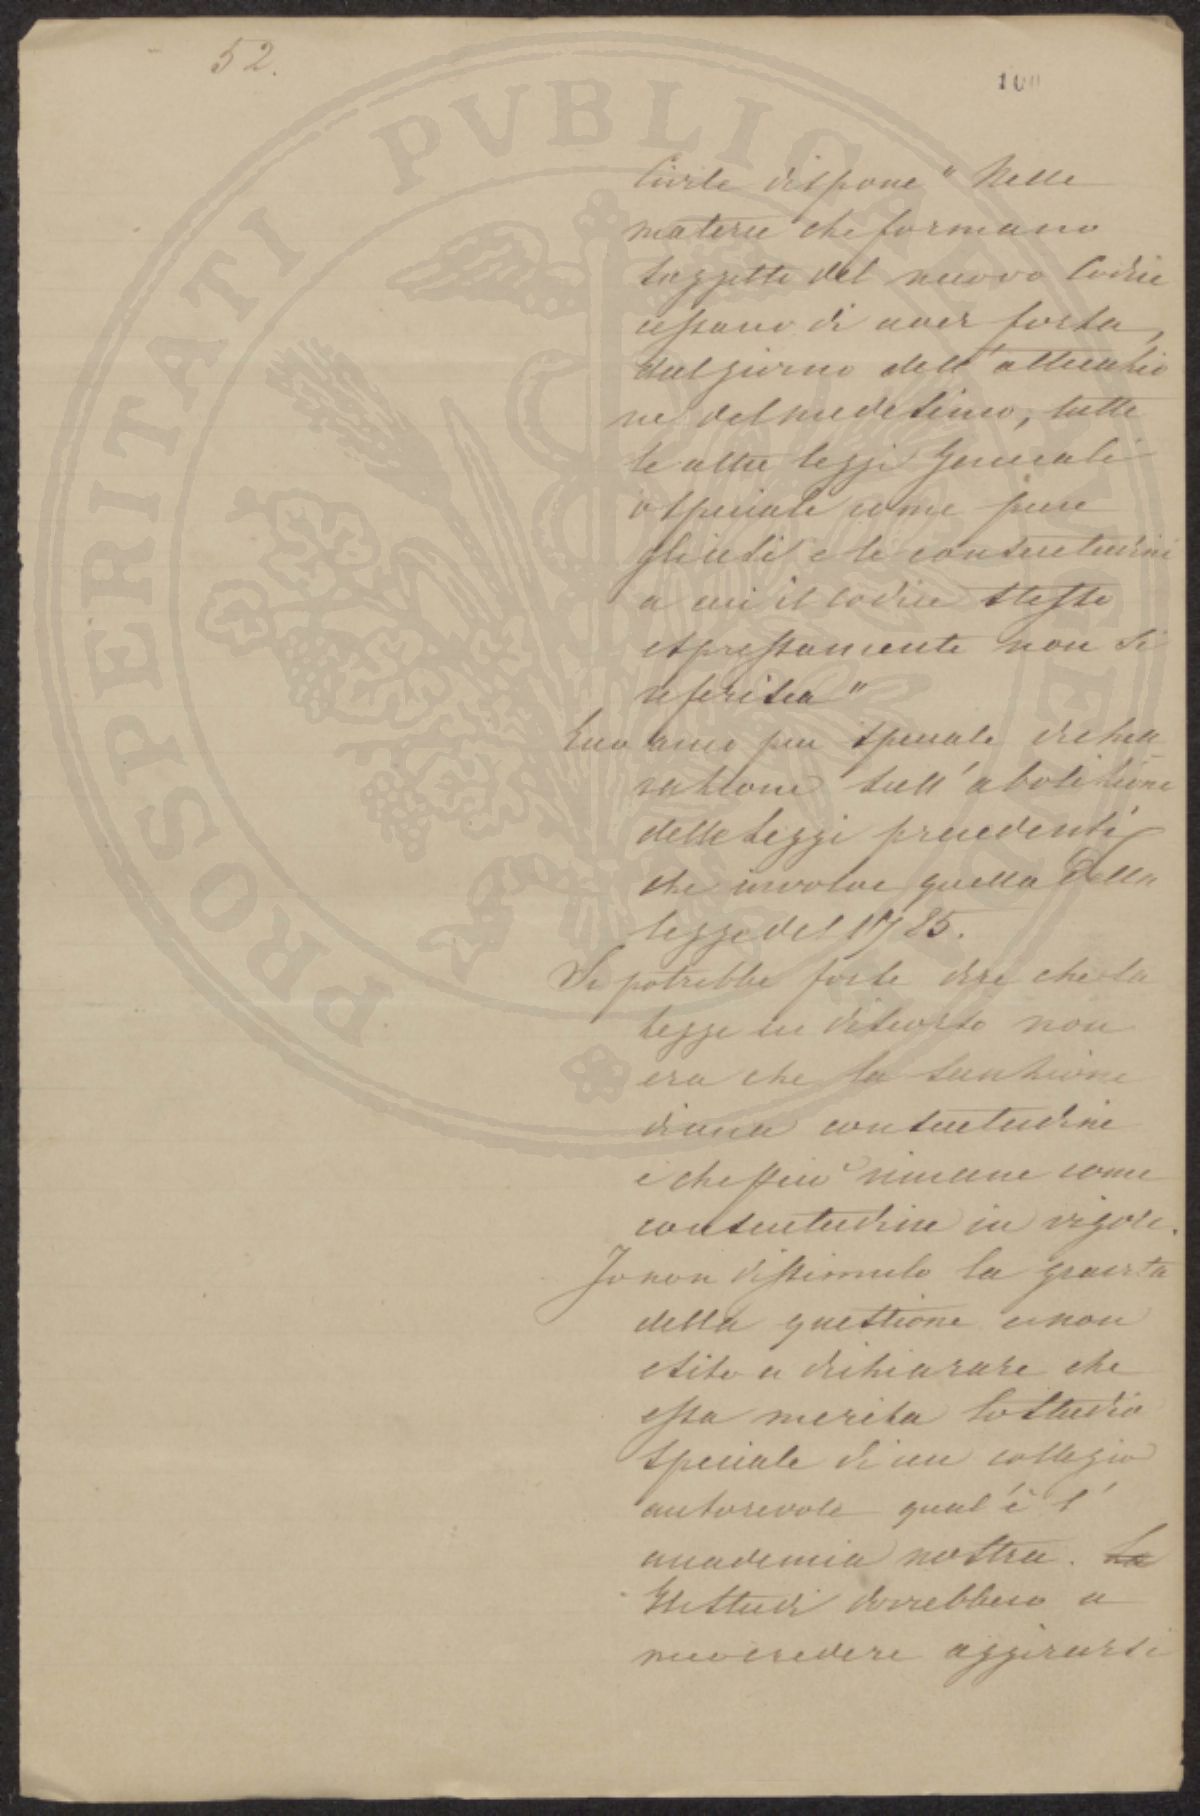 52.
100
Civile dispone " Nelle
materie che formano
soggetto del nuovo Codice
cessano di aver forza,
dal giorno dell'attuazio
ne del medesimo, tutte
le altre leggi generali
o speciali come pure
gli usi e le consuetudini
a cui il Codice stesso
espressamente non si
riferisca "
Ecco anco più speciale dichia
razione sull'abolizione
delle leggi precedenti
che involve quella della
legge del 1785.
Si potrebbe forse dire che la
legge in discorso non
era che la sanzione
di una consuetudine
e che però rimane come
consuetudine in vigore.
Io non dissimulo la gravità
della questione e non
esito a dichiarare che
essa merita lo studio
speciale di un collegio
autorevole qual'è l'
accademia nostra.
Gli studi dovrebbero a
mio credere aggirarsi
PROSPERITATI PVBLICAE AVGENDAE